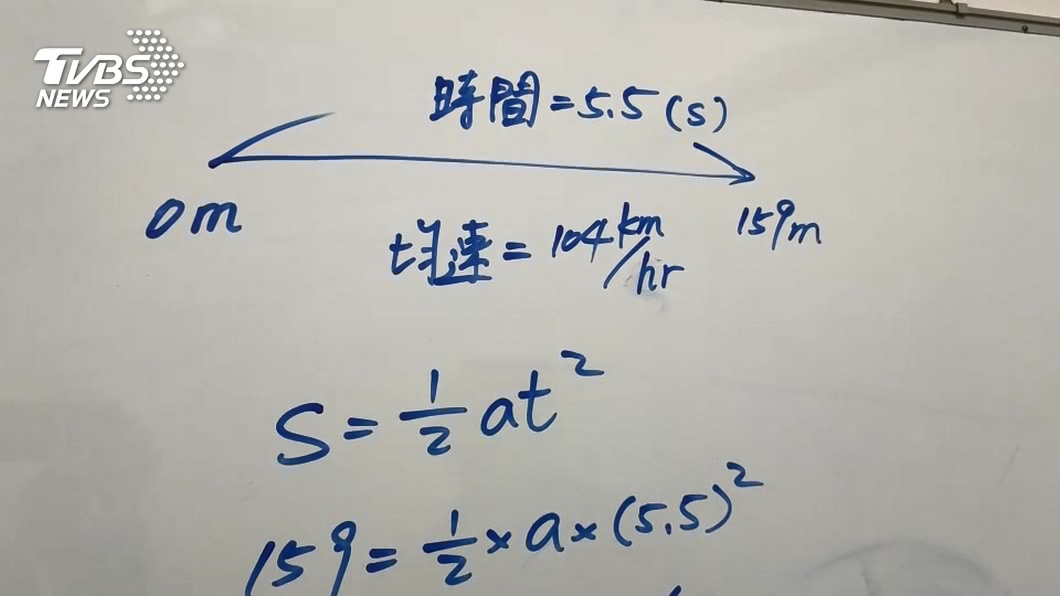 TVBS
NEWS
時間=5.5(s)
0m
159m
均速=104km/hr
S=½at²
159=½×a×(5.5)²